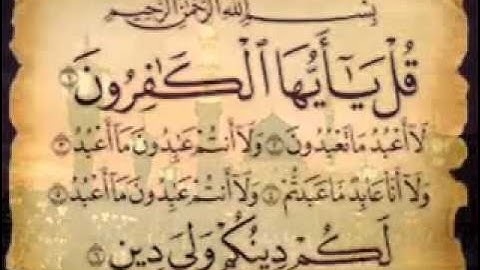 بِسْمِ اللَّهِ الرَّحْمَٰنِ الرَّحِيمِ
قُلْ يَٰٓأَيُّهَا ٱلْكَٰفِرُونَ ١
لَآ أَعْبُدُ مَا تَعْبُدُونَ ٢ وَلَآ أَنتُمْ عَٰبِدُونَ مَآ أَعْبُدُ ٣
وَلَآ أَنَا۠ عَابِدٌ مَّا عَبَدتُّمْ ٤ وَلَآ أَنتُمْ عَٰبِدُونَ مَآ أَعْبُدُ ٥
لَكُمْ دِينُكُمْ وَلِىَ دِينِ ٦